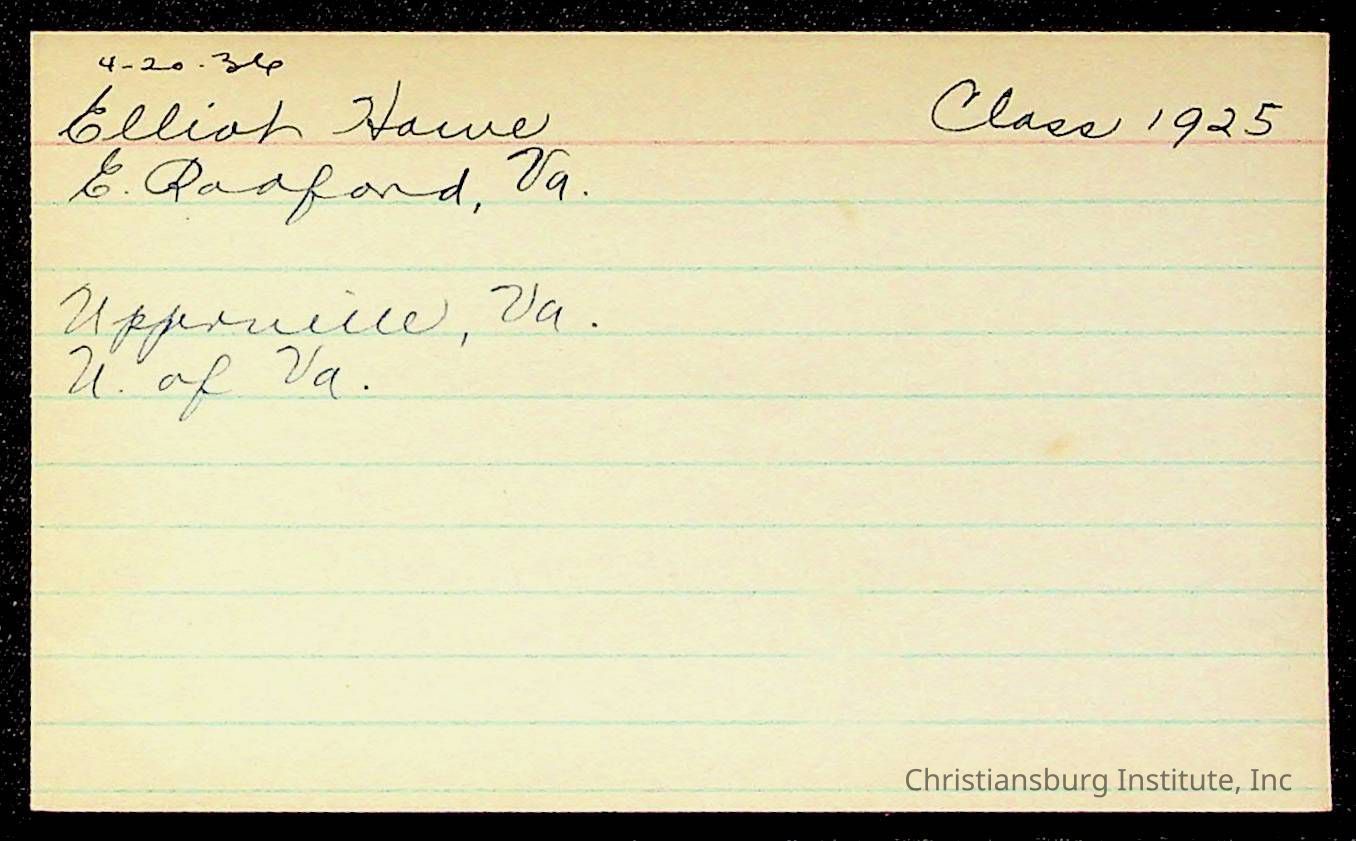 4-20-36
Elliot Howe Class 1925
E. Radford, Va.
Upperville, Va.
U. of Va.
Christiansburg Institute, Inc